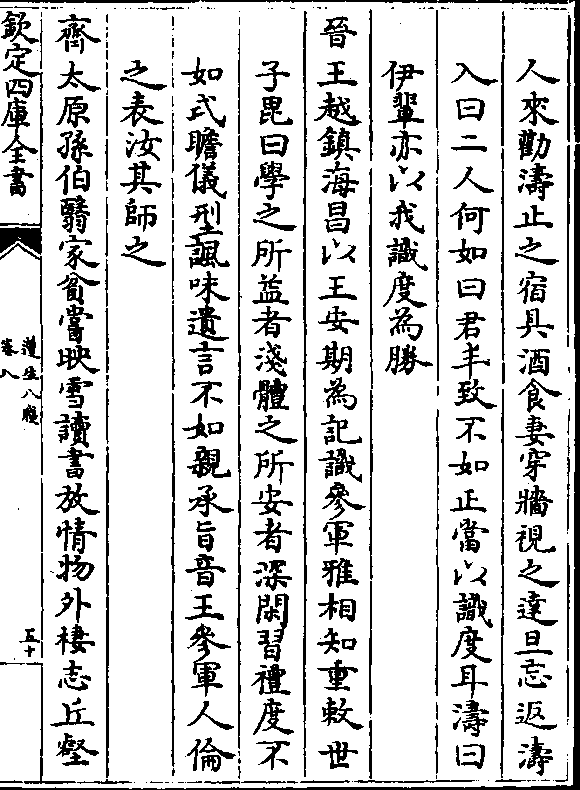 人來勸濤止之宿具酒食妻穿牆視之達旦忘返濤
入曰二人何如曰君丰致不如正當以識度耳濤曰
伊輩亦以我識度為勝
晉王越鎮海昌以王安期為記識參軍雅相知重敕世
子毘曰學之所益者淺體之所安者深閑習禮度不
如式瞻儀型諷味遺言不如親承旨音王參軍人倫
之表汝其師之
齊太原孫伯翳家貧嘗映雪讀書放情物外棲志丘壑
欽定四庫全書
遵生八牋
卷八
五十